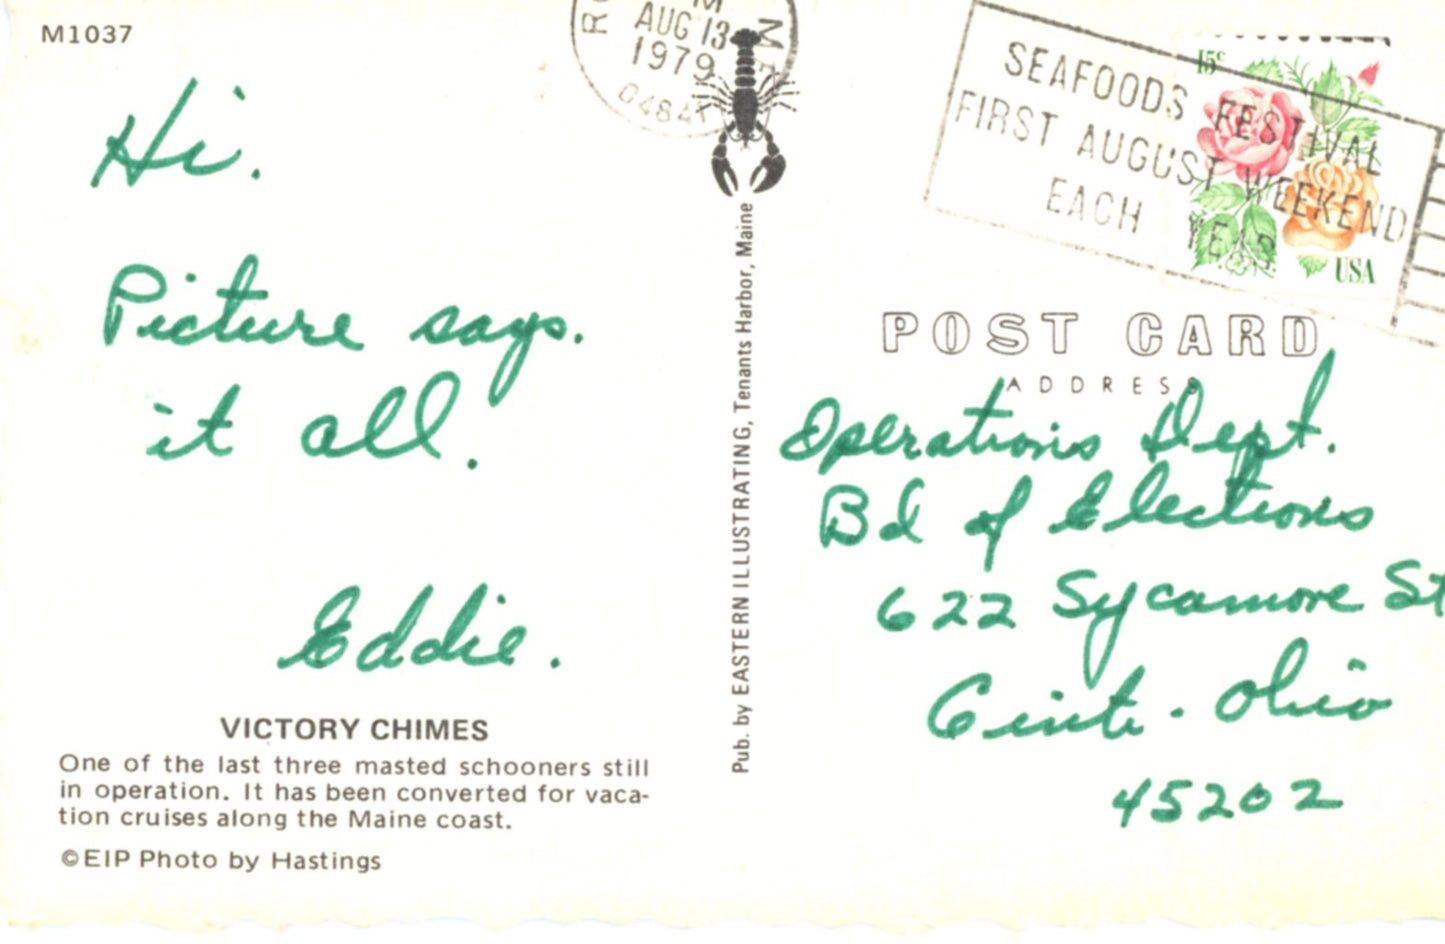 M1037
Hi.
Picture says.
it all.
Eddie.
VICTORY CHIMES
One of the last three masted schooners still
in operation. It has been converted for vaca-
tion cruises along the Maine coast.
©EIP Photo by Hastings
Pub. by EASTERN ILLUSTRATING, Tenants Harbor, Maine
AUG 13
1979
SEAFOODS FESTIVAL
FIRST AUGUST WEEKEND
EACH YEAR
15c
USA
POST CARD
ADDRESS
Operations Dept.
Bd of Elections
622 Sycamore St
Cinti. Ohio
45202